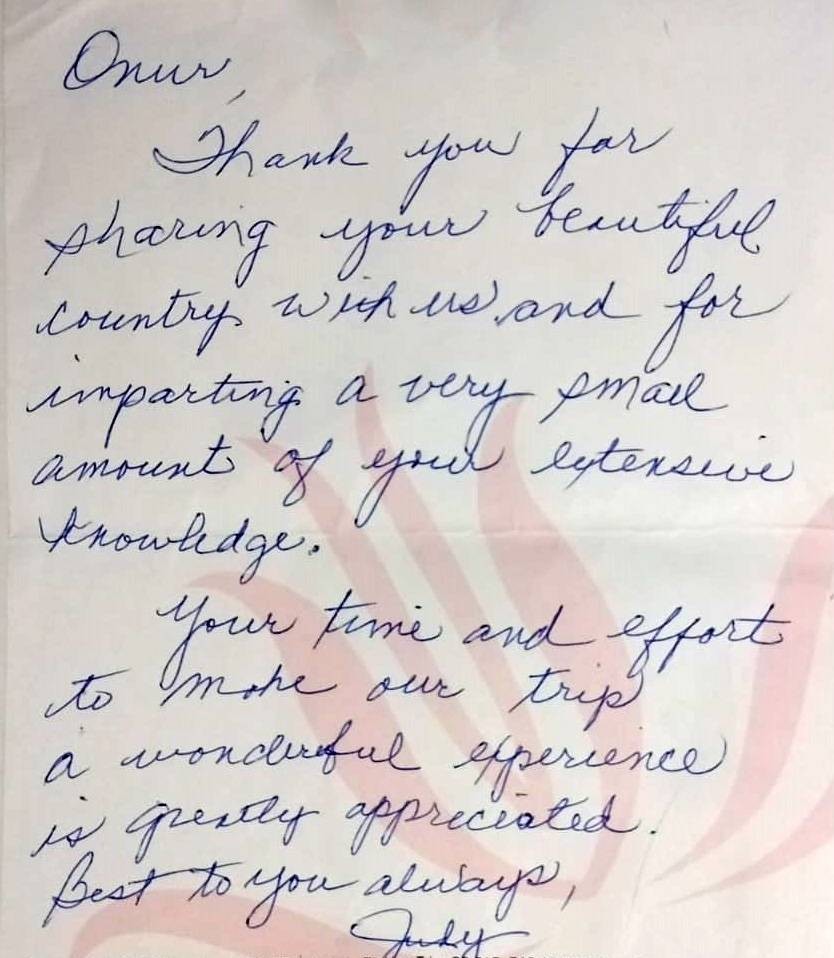 Onur,
Thank you for
sharing your beautiful
country with us and for
imparting a very small
amount of your extensive
knowledge.
Your time and effort
to make our trip
a wonderful experience
is greatly appreciated.
Best to you always,
Judy